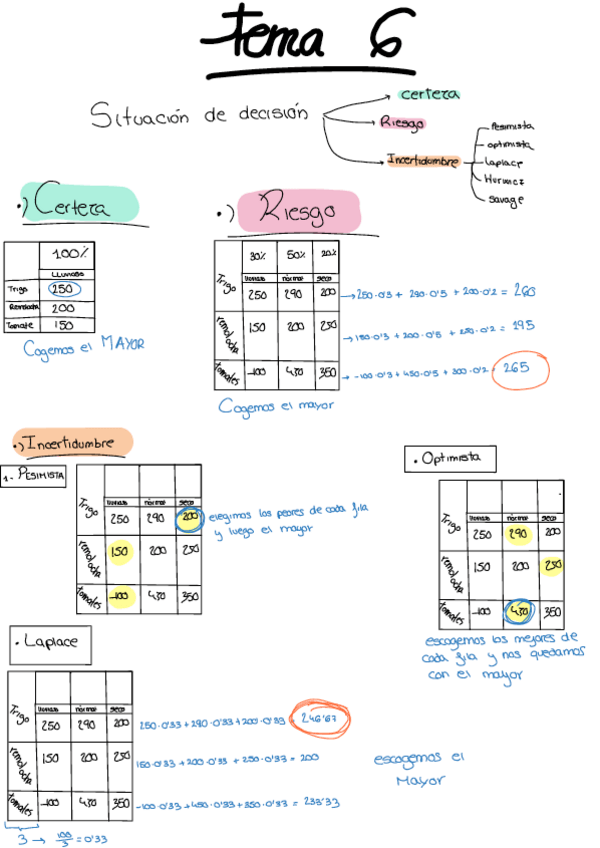 tema 6
Situación de decisión
certeza
Riesgo
Incertidumbre
Pesimista
optimista
Laplace
Hurwicz
savage
•) Certeza
100%
LLUVIOSO
Trigo 250
Remolacha 200
Tomate 150
Cogemos el MAYOR
•) Riesgo
30% 50% 20%
lluvioso normal seco
Trigo 250 290 200 → 250·0'3 + 290·0'5 + 200·0'2 = 260
remolacha 150 200 250 → 150·0'3 + 200·0'5 + 250·0'2 = 195
tomates -100 430 350 → -100·0'3 + 450·0'5 + 300·0'2 = 265
Cogemos el mayor
•) Incertidumbre
1- PESIMISTA
lluvioso normal seco
Trigo 250 290 200
remolacha 150 200 250
tomates -100 430 350
elegimos los peores de cada fila
y luego el mayor
• Optimista
lluvioso normal seco
Trigo 250 290 200
remolacha 150 200 250
tomates -100 430 350
escogemos los mejores de
cada fila y nos quedamos
con el mayor
• Laplace
lluvioso normal seco
Trigo 250 290 200 250·0'33 + 290·0'33 + 200·0'33 = 246'67
remolacha 150 200 250 150·0'33 + 200·0'33 + 250·0'33 = 200
tomates -100 430 350 -100·0'33 + 450·0'33 + 350·0'33 = 233'33
escogemos el
Mayor
3 → 100/3 = 0'33